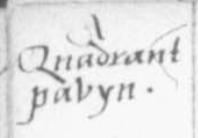 Quadrant
pavyn .